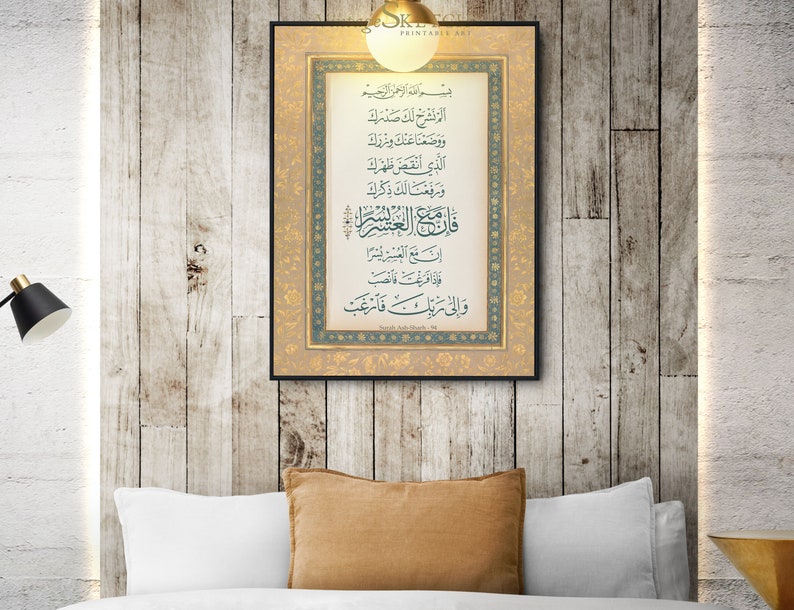 SKETCH
PRINTABLE ART
بِسْمِ اللهِ الرَّحْمَنِ الرَّحِيمِ
أَلَمْ نَشْرَحْ لَكَ صَدْرَكَ
وَوَضَعْنَا عَنْكَ وِزْرَكَ
الَّذِي أَنْقَضَ ظَهْرَكَ
وَرَفَعْنَا لَكَ ذِكْرَكَ
فَإِنَّ مَعَ الْعُسْرِ يُسْرًا
إِنَّ مَعَ الْعُسْرِ يُسْرًا
فَإِذَا فَرَغْتَ فَانْصَبْ
وَإِلَى رَبِّكَ فَارْغَبْ
Surah Ash-Sharh - 94